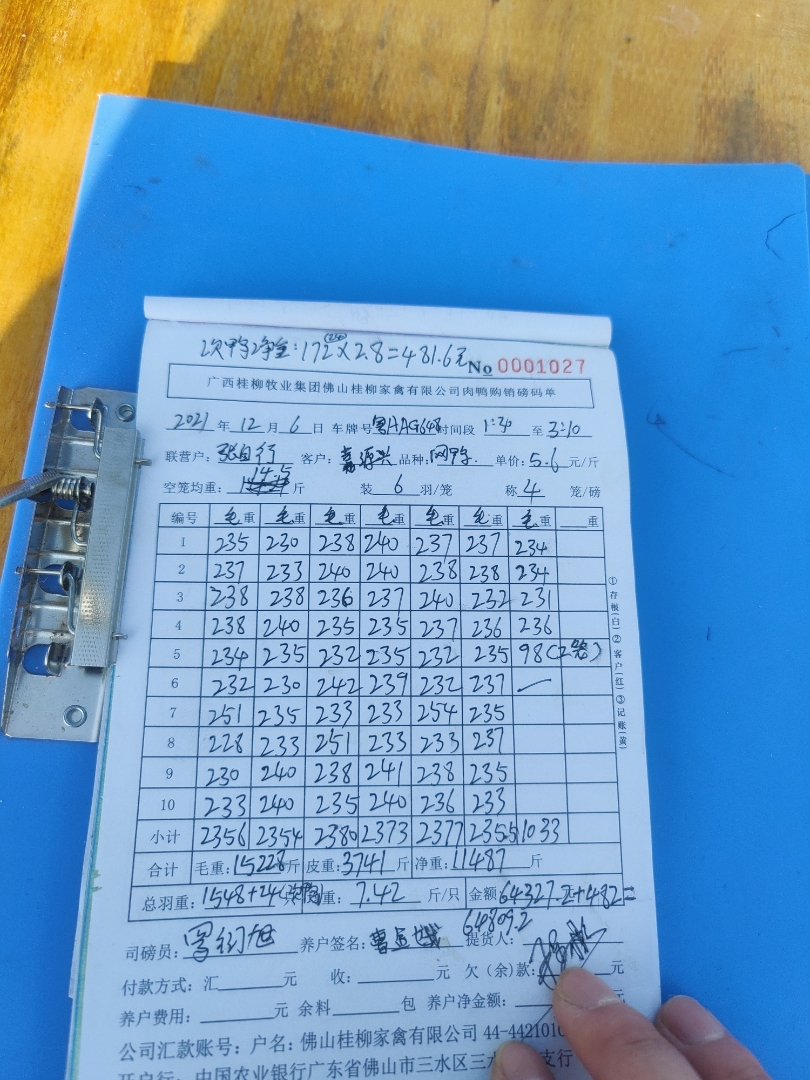 次鸭净重:172×2.8=481.6元 No 0001027
广西桂柳牧业集团佛山桂柳家禽有限公司肉鸭购销磅码单
2021年12月6日 车牌号粤HAG648时间段1:30至3:10
联营户: 客户: 品种: 单价:5.6元/斤
空笼均重:14.5斤 装6羽/笼 称4笼/磅
编号 毛重 毛重 毛重 毛重 毛重 毛重 毛重 重
1 235 230 238 240 237 237 234
2 237 233 240 240 238 238 234
3 238 238 236 237 240 232 231
4 238 240 235 235 237 236 236
5 234 235 232 235 232 235 98(2笼)
6 232 230 242 239 232 237 —
7 251 235 233 233 254 235
8 228 233 251 233 233 237
9 230 240 238 241 238 235
10 233 240 235 240 236 233
小计 2356 2354 2380 2373 2377 2355 1033
合计 毛重:15228斤 皮重:3741斤 净重:11487斤
总羽重:1548+24 重:7.42斤/只 金额64327.2+482=
64809.2
司磅员: 养户签名: 提货人:
付款方式:汇 元 收: 元 欠(余)款: 元
养户费用: 元 余料 包 养户净金额:
公司汇款账号:户名:佛山桂柳家禽有限公司 44-442101
开户行:中国农业银行广东省佛山市三水区三水 支行
①存根(白)②客户(红)③记账(黄)